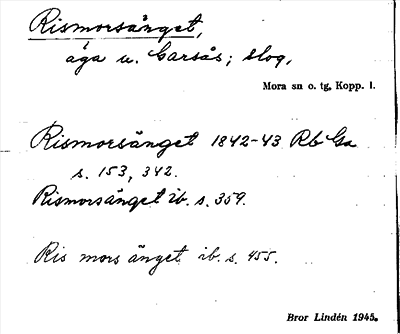 Rismorsänget,
äga u. Garsås; slog,
Mora sn o. tg, Kopp. l.
Rismorsänget 1842-43 Rb Ga
s. 153, 342.
Rismorsänget ib. s. 359.
Ris mors änget ib. s. 455.
Bror Lindén 1945.